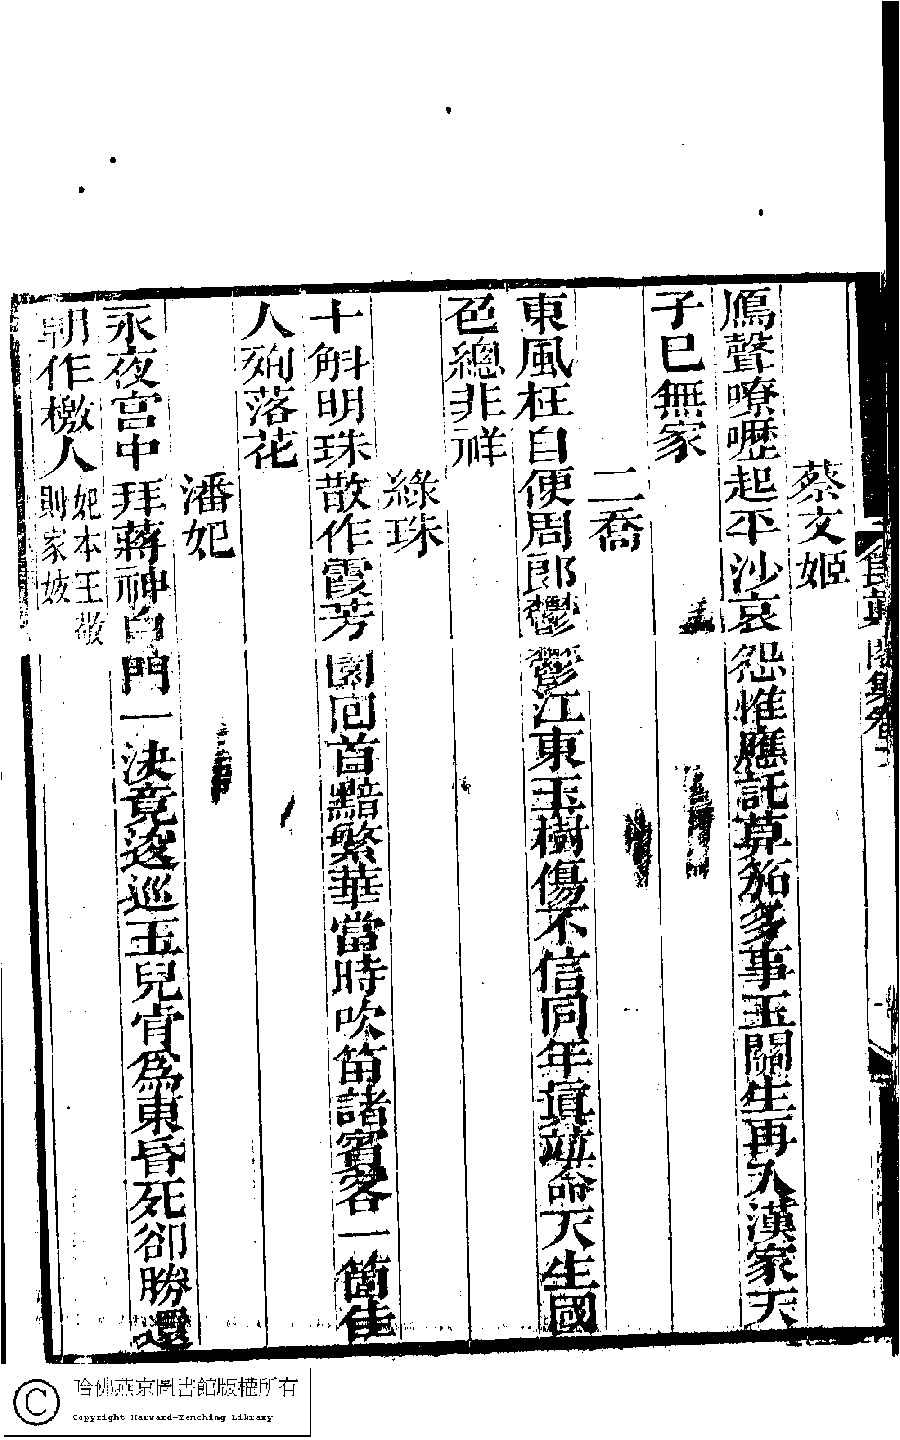 蔡文姬
鴈聲嘹嚦起平沙哀怨惟應託草笳多事玉關生再入漢家天
子已無家
二喬
東風枉自便周郎鬱鬱江東玉樹傷不信同年真竝命天生國
色總非祥
綠珠
十斛明珠散作霞芳園回首黯繁華當時吹笛諸賓客一箇佳
人殉落花
潘妃
永夜宮中拜蔣神白門一決竟逡巡玉兒肯爲東昏死卻勝還
朝作檄人妃本王敬
則家妓
哈佛燕京圖書館版權所有
Copyright Harvard-Yenching Library